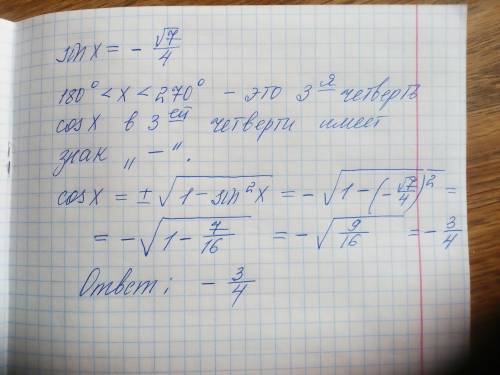 sin x = - √7/4
180° < x < 270° - это 3я четверть
cos x в 3ей четверти имеет
знак „ — ".
cos x = ± √(1 - sin²x) = - √(1 - (-√7/4)²) =
= - √(1 - 7/16) = - √(9/16) = - 3/4
Ответ: - 3/4